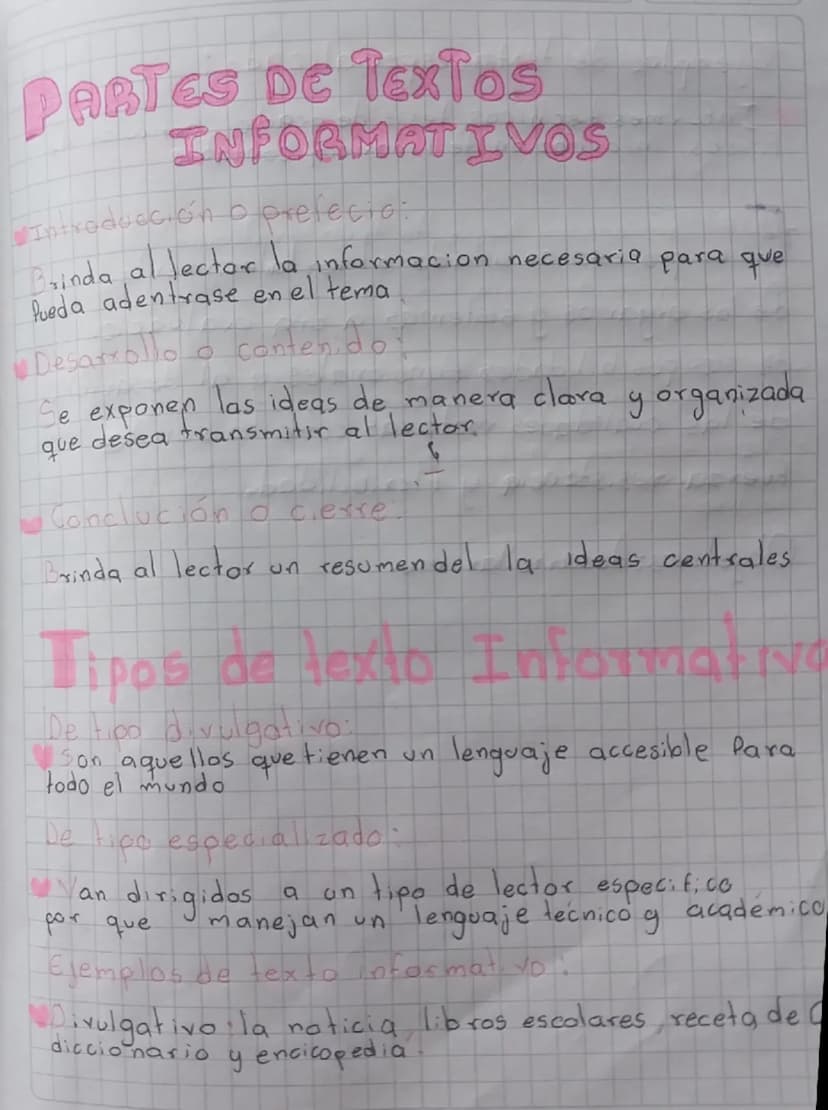 PARTES DE TEXTOS
INFORMATIVOS
Introducción o prefecio:
Brinda al lector la informacion necesaria para que
Pueda adentrase en el tema
Desarrollo o contenido:
Se exponen las ideas de manera clara y organizada
que desea transmitir al lector.
Conclución o cierre.
Brinda al lector un resumen del la ideas centrales
Tipos de texto Informativo
De tipo divulgativo:
Son aquellos que tienen un lenguaje accesible Para
todo el mundo
De tipo especializado:
Van dirigidos a un tipo de lector especifico
por que manejan un lenguaje tecnico y académico
Ejemplos de texto informativo:
Divulgativo: la noticia, libros escolares, receta de
diccionario y encicopedia.